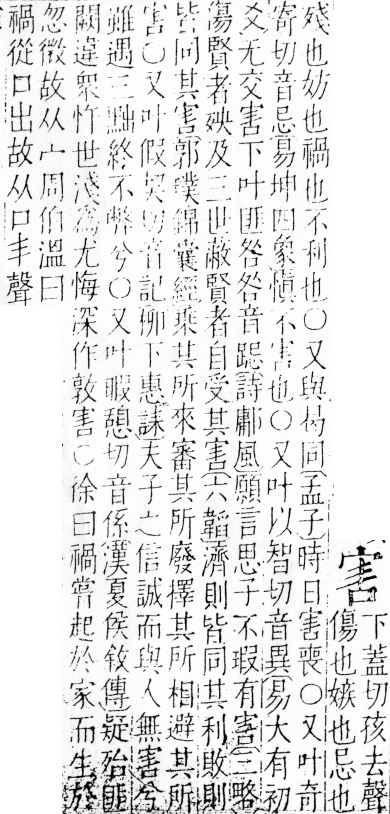 害
下蓋切孩去聲
傷也嫉也忌也
殘也妨也禍也不利也○又與曷同孟子時日害喪○又叶奇
寄切音忌易坤四象愼不害也○又叶以智切音異易大有初
爻无交害下叶匪咎咎音跽詩鄘風願言思子不瑕有害三略
傷賢者殃及三世蔽賢者自受其害六韜濟則皆同其利敗則
皆同其害郭璞錦囊經乘其所來審其所廢擇其所相避其所
害○又叶假契切音記柳下惠誄天子之信誠而與人無害兮
雖遇三黜終不弊兮○又叶暇憩切音係漢夏侯敘傳疑殆匪
闕違衆忤世淺爲尤悔深作敦害○徐曰禍嘗起於家而生於
忽微故从宀周伯溫曰
禍從口出故从口丰聲